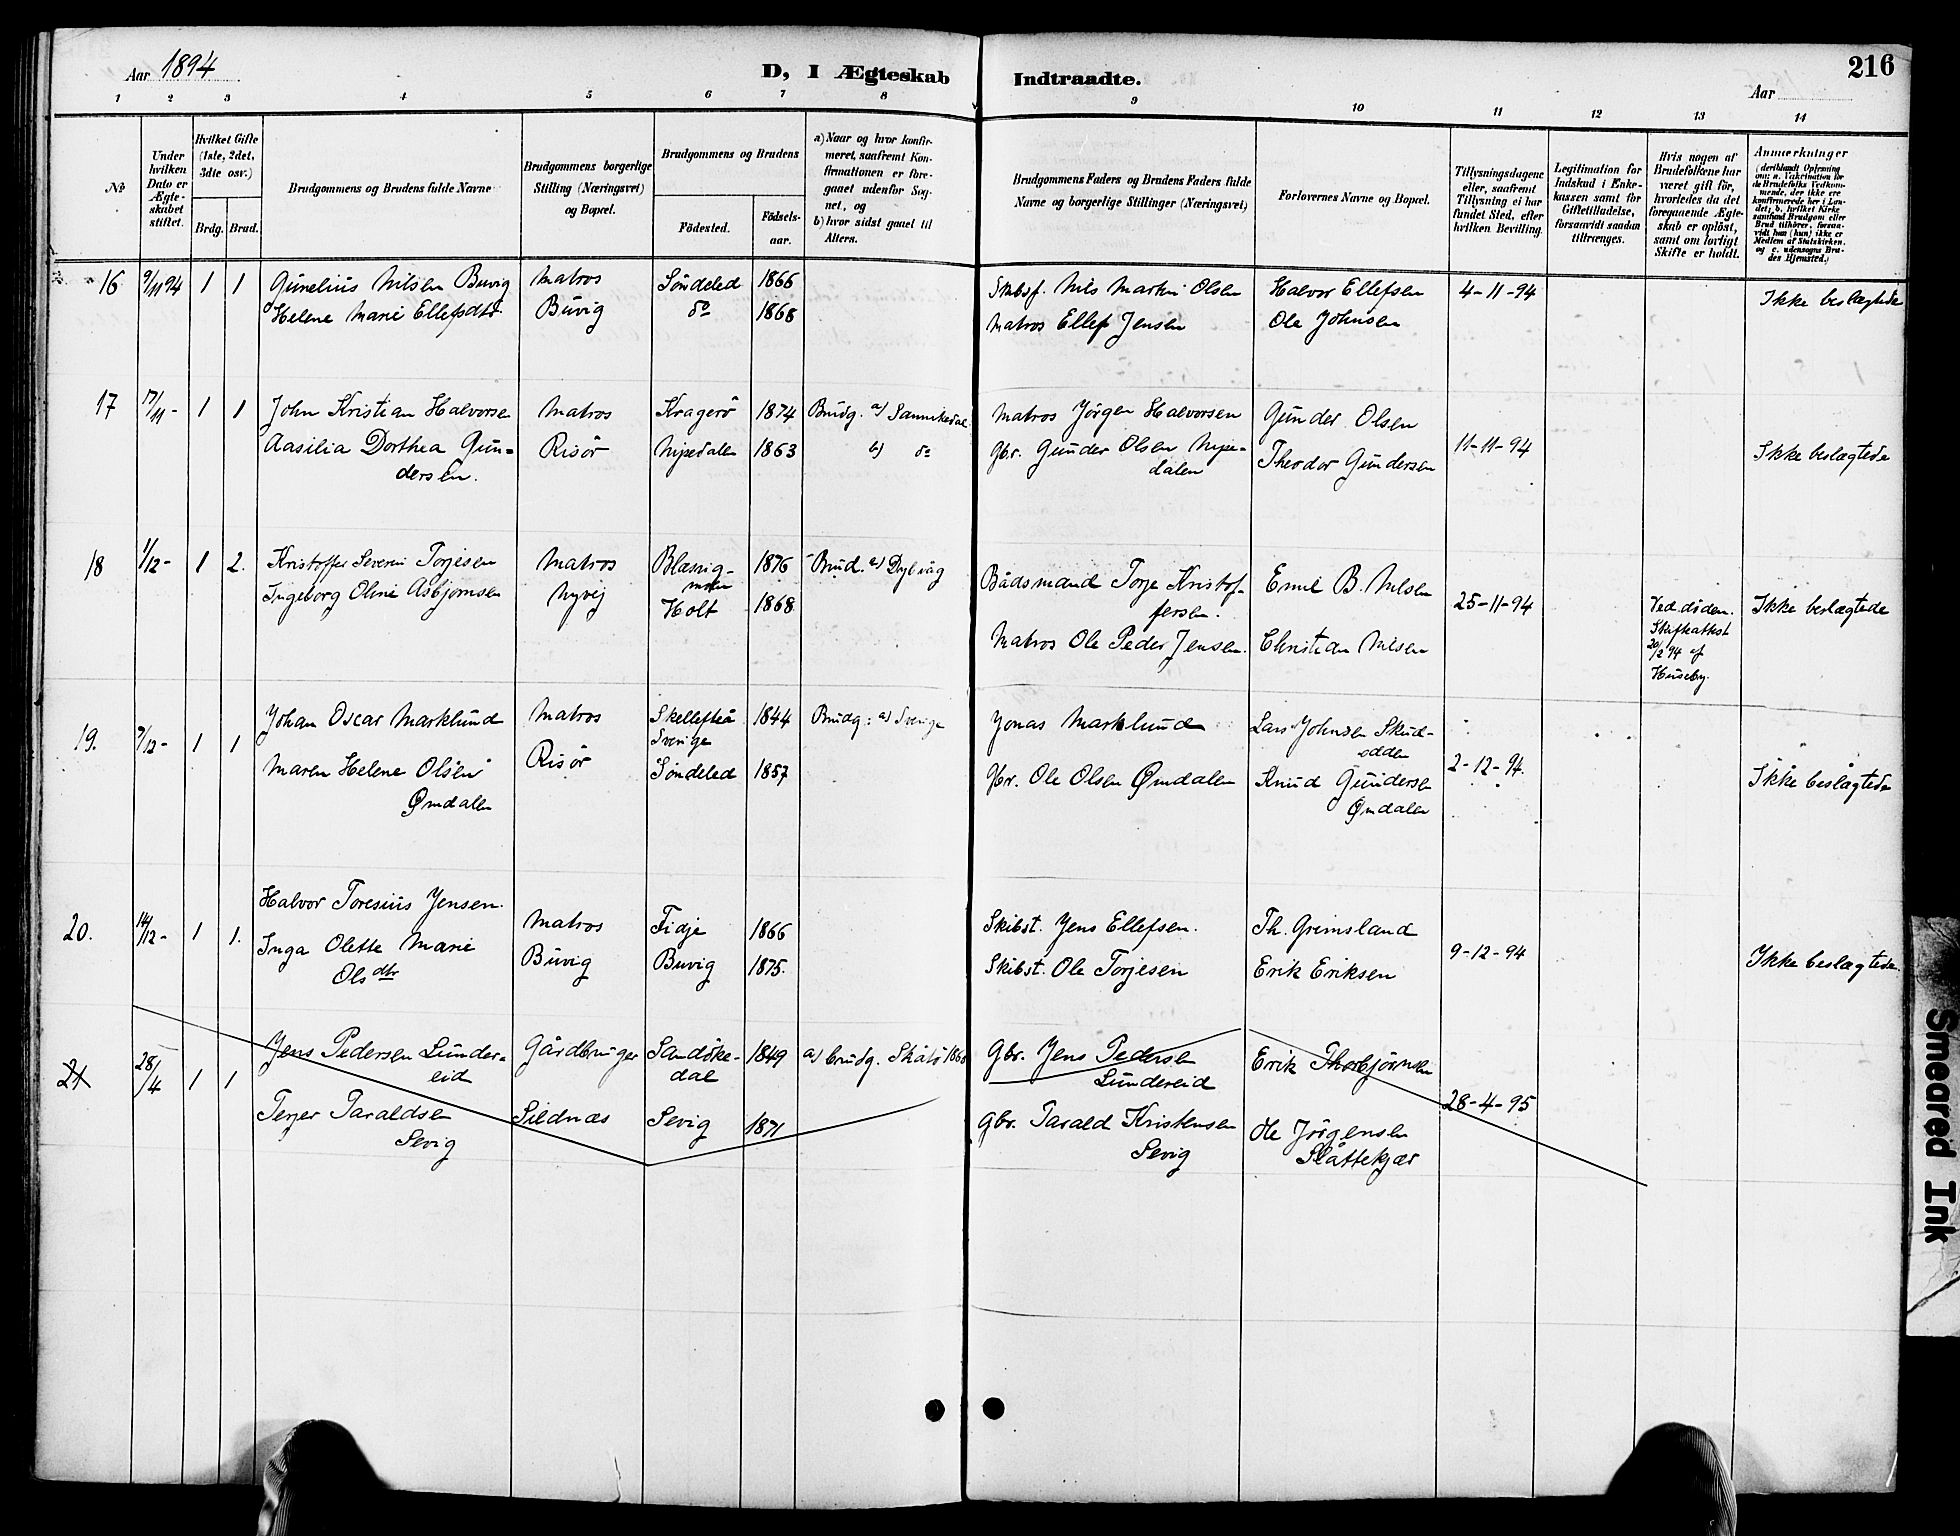 Aar 1894
D, I Ægteskab
Indtraadte.
216
Aar
1 2 3 4 5 6 7 8 9 10 11 12 13 14
No
Under hvilken Dato er Ægte-skabet stiftet.
Hvilket Gifte (1ste, 2det, 3dte osv.)
Brdg. Brud.
Brudgommens og Brudens fulde Navne
Brudgommens borgerlige Stilling (Næringsvei) og Bopæl.
Brudgommens og Brudens
Fødested.
Fødsels-aar.
a) Naar og hvor konfir-meret, saafremt Kon-firmationen er fore-gaaet udenfor Sog-net, og
b) hvor sidst gaaet til Alters.
Brudgommens Faders og Brudens Faders fulde Navne og borgerlige Stillinger (Næringsvei)
Forlovernes Navne og Bopæl.
Tillysningsdagene eller, saafremt Tillysning ei har fundet Sted, efter hvilken Bevilling.
Legitimation for Indskud i Enke-kassen samt for Giftetilladelse, forsaavidt saadan tiltrænges.
Hvis nogen af Brudefolkene har været gift før, hvorledes da det foregaaende Ægte-skab er opløst, samt om lovligt Skifte er holdt.
Anmærkninger
16 9/11 94 1 1 Gunelius Nilsen Buvig Matros Søndeled 1866 Skibsf. Nils Martin Olsen Halvor Ellefsen 4-11-94 Ikke beslægtede
Helene Marie Ellefsdtr. Buvig do 1868 Matros Ellef Jensen Ole Johnsen
17 17/11- 1 1 John Kristian Halvorse Matros Kragerö 1874 Brudg. a) Sannikedal Matros Jörgen Halvorsen Gunder Olsen
Aasilia Dorthea Gun= Risör Nipedalen 1863 b) do Gbr. Gunder Olsen Nipe= Theodor Gundersen 11-11-94 Ikke beslægtede
dersen. dalen
18 1/12- 1 2. Kristoffer Severin Torjesen Matros 1876 Brud. a) Dybvåg Bådsmand Torje Kristof- Emil B. Nilsen
Ingeborg Oline Asbjørnsen Nyvej Holt 1868 fersen. 25-11-94 Ved döden. Ikke beslægtede
Matros Ole Peder Jensen. Christian Nilsen Skifteattest
20/2 94 af
Huseby.
19. 9/12- 1 1 Johan Oscar Marklund Matros Skellefteå 1844 Brudg: a) Sverige Jonas Marklund Lars Johnsen Skud-
Sverige odden
Maren Helene Olsen Risör Søndeled 1857 Gbr. Ole Olsen Ømdalen Knud Gundersen 2-12-94. Ikke beslägtede
Ømdalen Ømdalen
20. 14/12- 1 1. Halvor Toresius Jensen. Matros Fidje 1866 Skibst. Jens Ellefsen. Th. Grimsland
Inga Olette Marie Buvig Buvig 1875. Skibst. Ole Torjesen Erik Eriksen 9-12-94 Ikke beslægtede.
Olsdtr
21 28/4 1 1 Jens Pedersen Lunder= Gårdbruger Sandöke- 1849 a) brudg. Skåtö Gbr. Jens Pedersen Erik Thorbjørnsen
eid dal Lundereid
Terjer Taraldsen Sildnæs Sevig 1871 Gbr. Tarald Kristensen Ole Jörgensen 28-4-95
Sevig Sevig Slåttekjær
Smeared Ink